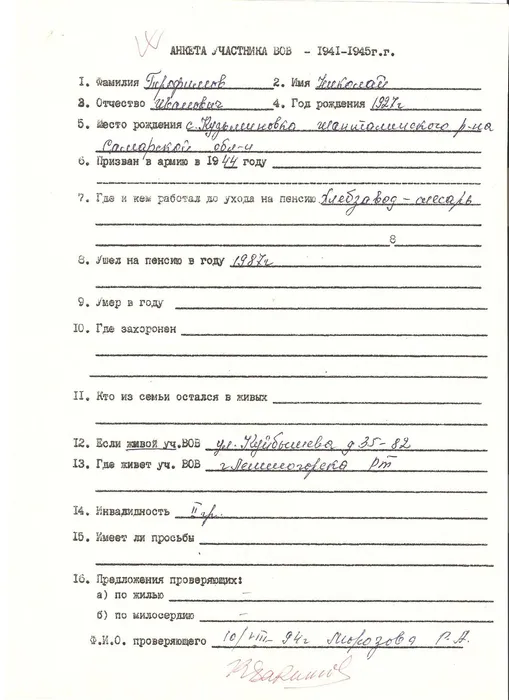 АНКЕТА УЧАСТНИКА ВОВ - 1941-1945г.г.
1. Фамилия Трофимов 2. Имя Николай
3. Отчество Иванович 4. Год рождения 1927г
5. Место рождения с. Кузьминовка Шенталинского р-на
Самарской обл-и
6. Призван в армию в 1944 году
7. Где и кем работал до ухода на пенсию Хлебзавод - слесарь
8
8. Ушел на пенсию в году 1987г
9. Умер в году
10. Где захоронен
11. Кто из семьи остался в живых
12. Если живой уч.ВОВ ул. Куйбышева д 35-82
13. Где живет уч. ВОВ г Лениногорска РТ
14. Инвалидность II гр.
15. Имеет ли просьбы
16. Предложения проверяющих:
а) по жилью –
б) по милосердию –
Ф.И.О. проверяющего 10/VIII-94г Морозова Р.А.